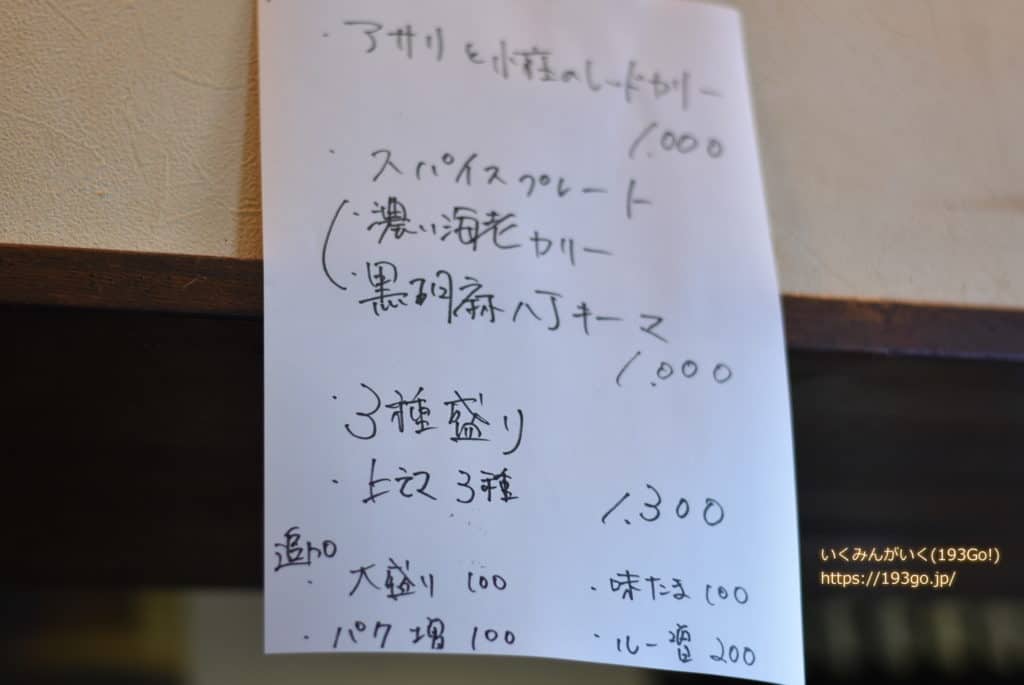 ・アサリと小柱のレッドカリー
1.000
・スパイスプレート
・濃い海老カリー
・黒胡麻八丁キーマ
1.000
・3種盛り
・上記 3種
1.300
追加
・大盛り 100
・味たま 100
・パク増 100
・ルー増 200
いくみんがいく(193Go!)
https://193go.jp/